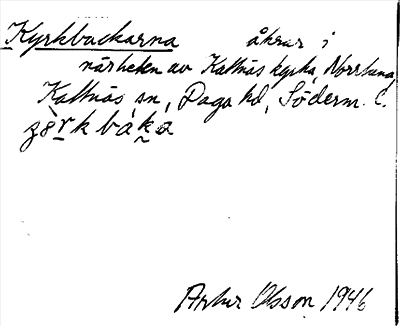 Kyrkbackarna åkrar i
närheten av Kattnäs kyrka, Norrtuna,
Kattnäs sn, Daga hd, Söderm. l.
Artur Olsson 1946